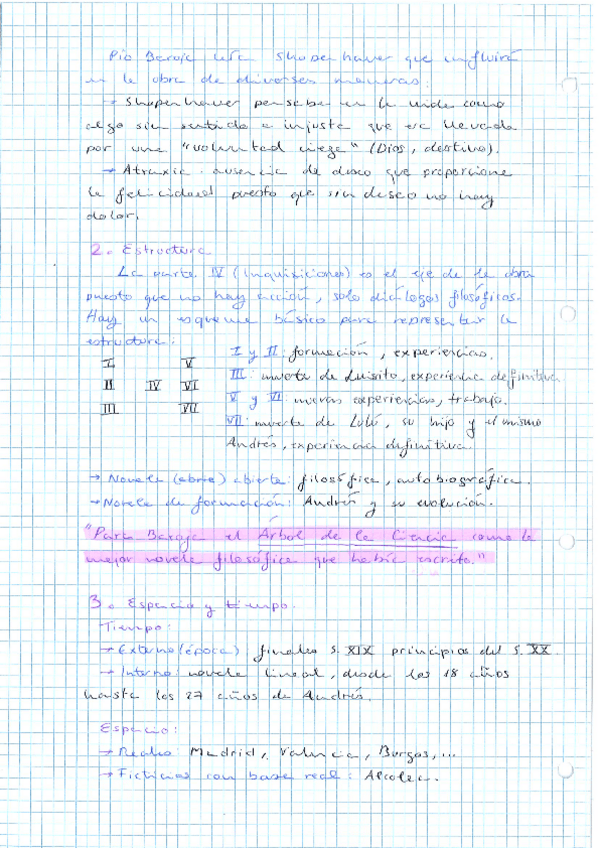 Pío Baroja leía Shopenhauer que influirá
en la obra de diversas maneras:
→ Shopenhauer pensaba en la vida como
algo sin sentido e injusta que era llevada
por una "voluntad ciega" (Dios, destino).
→ Atraxia: ausencia de deseo que proporciona
la felicidad puesto que sin deseo no hay
dolor.
2. Estructura
La parte IV (Inquisiciones) es el eje de la obra
puesto que no hay acción, solo diálogos filosóficos.
Hay un esquema básico para representar la
estructura:
I V
II IV VI
III VII
I y II: formación, experiencias.
III: muerte de Luisito, experiencia definitiva.
V y VI: nuevas experiencias, trabajo.
VII: muerte de Lulú, su hijo y el mismo
Andrés, experiencia definitiva.
→ Novela (obra) abierta: filosófica, autobiográfica.
→ Novela de formación: Andrés y su evolución.
"Para Baroja el Árbol de la Ciencia como la
mejor novela filosófica que había escrito."
3. Espacio y tiempo.
Tiempo:
→ Externo (época) finales S. XIX principios del S. XX.
→ Interno: novela lineal, desde los 18 años
hasta los 27 años de Andrés.
Espacio:
→ Reales: Madrid, Valencia, Burgos,...
→ Ficticias con base real: Alcolea.